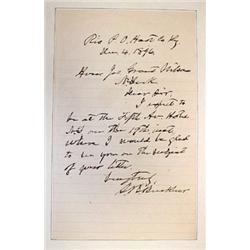 Rio P.O. Hart Co Ky.
4. 1896.
Genl Jas. Grant Wilson
N. York
Dear Sir,
I expect to
be at the Fifth Av. Hotel
N.Y. on the 19th inst,
where I would be glad
to see you on the subject
of your letter.
Very truly,
S B Buckner